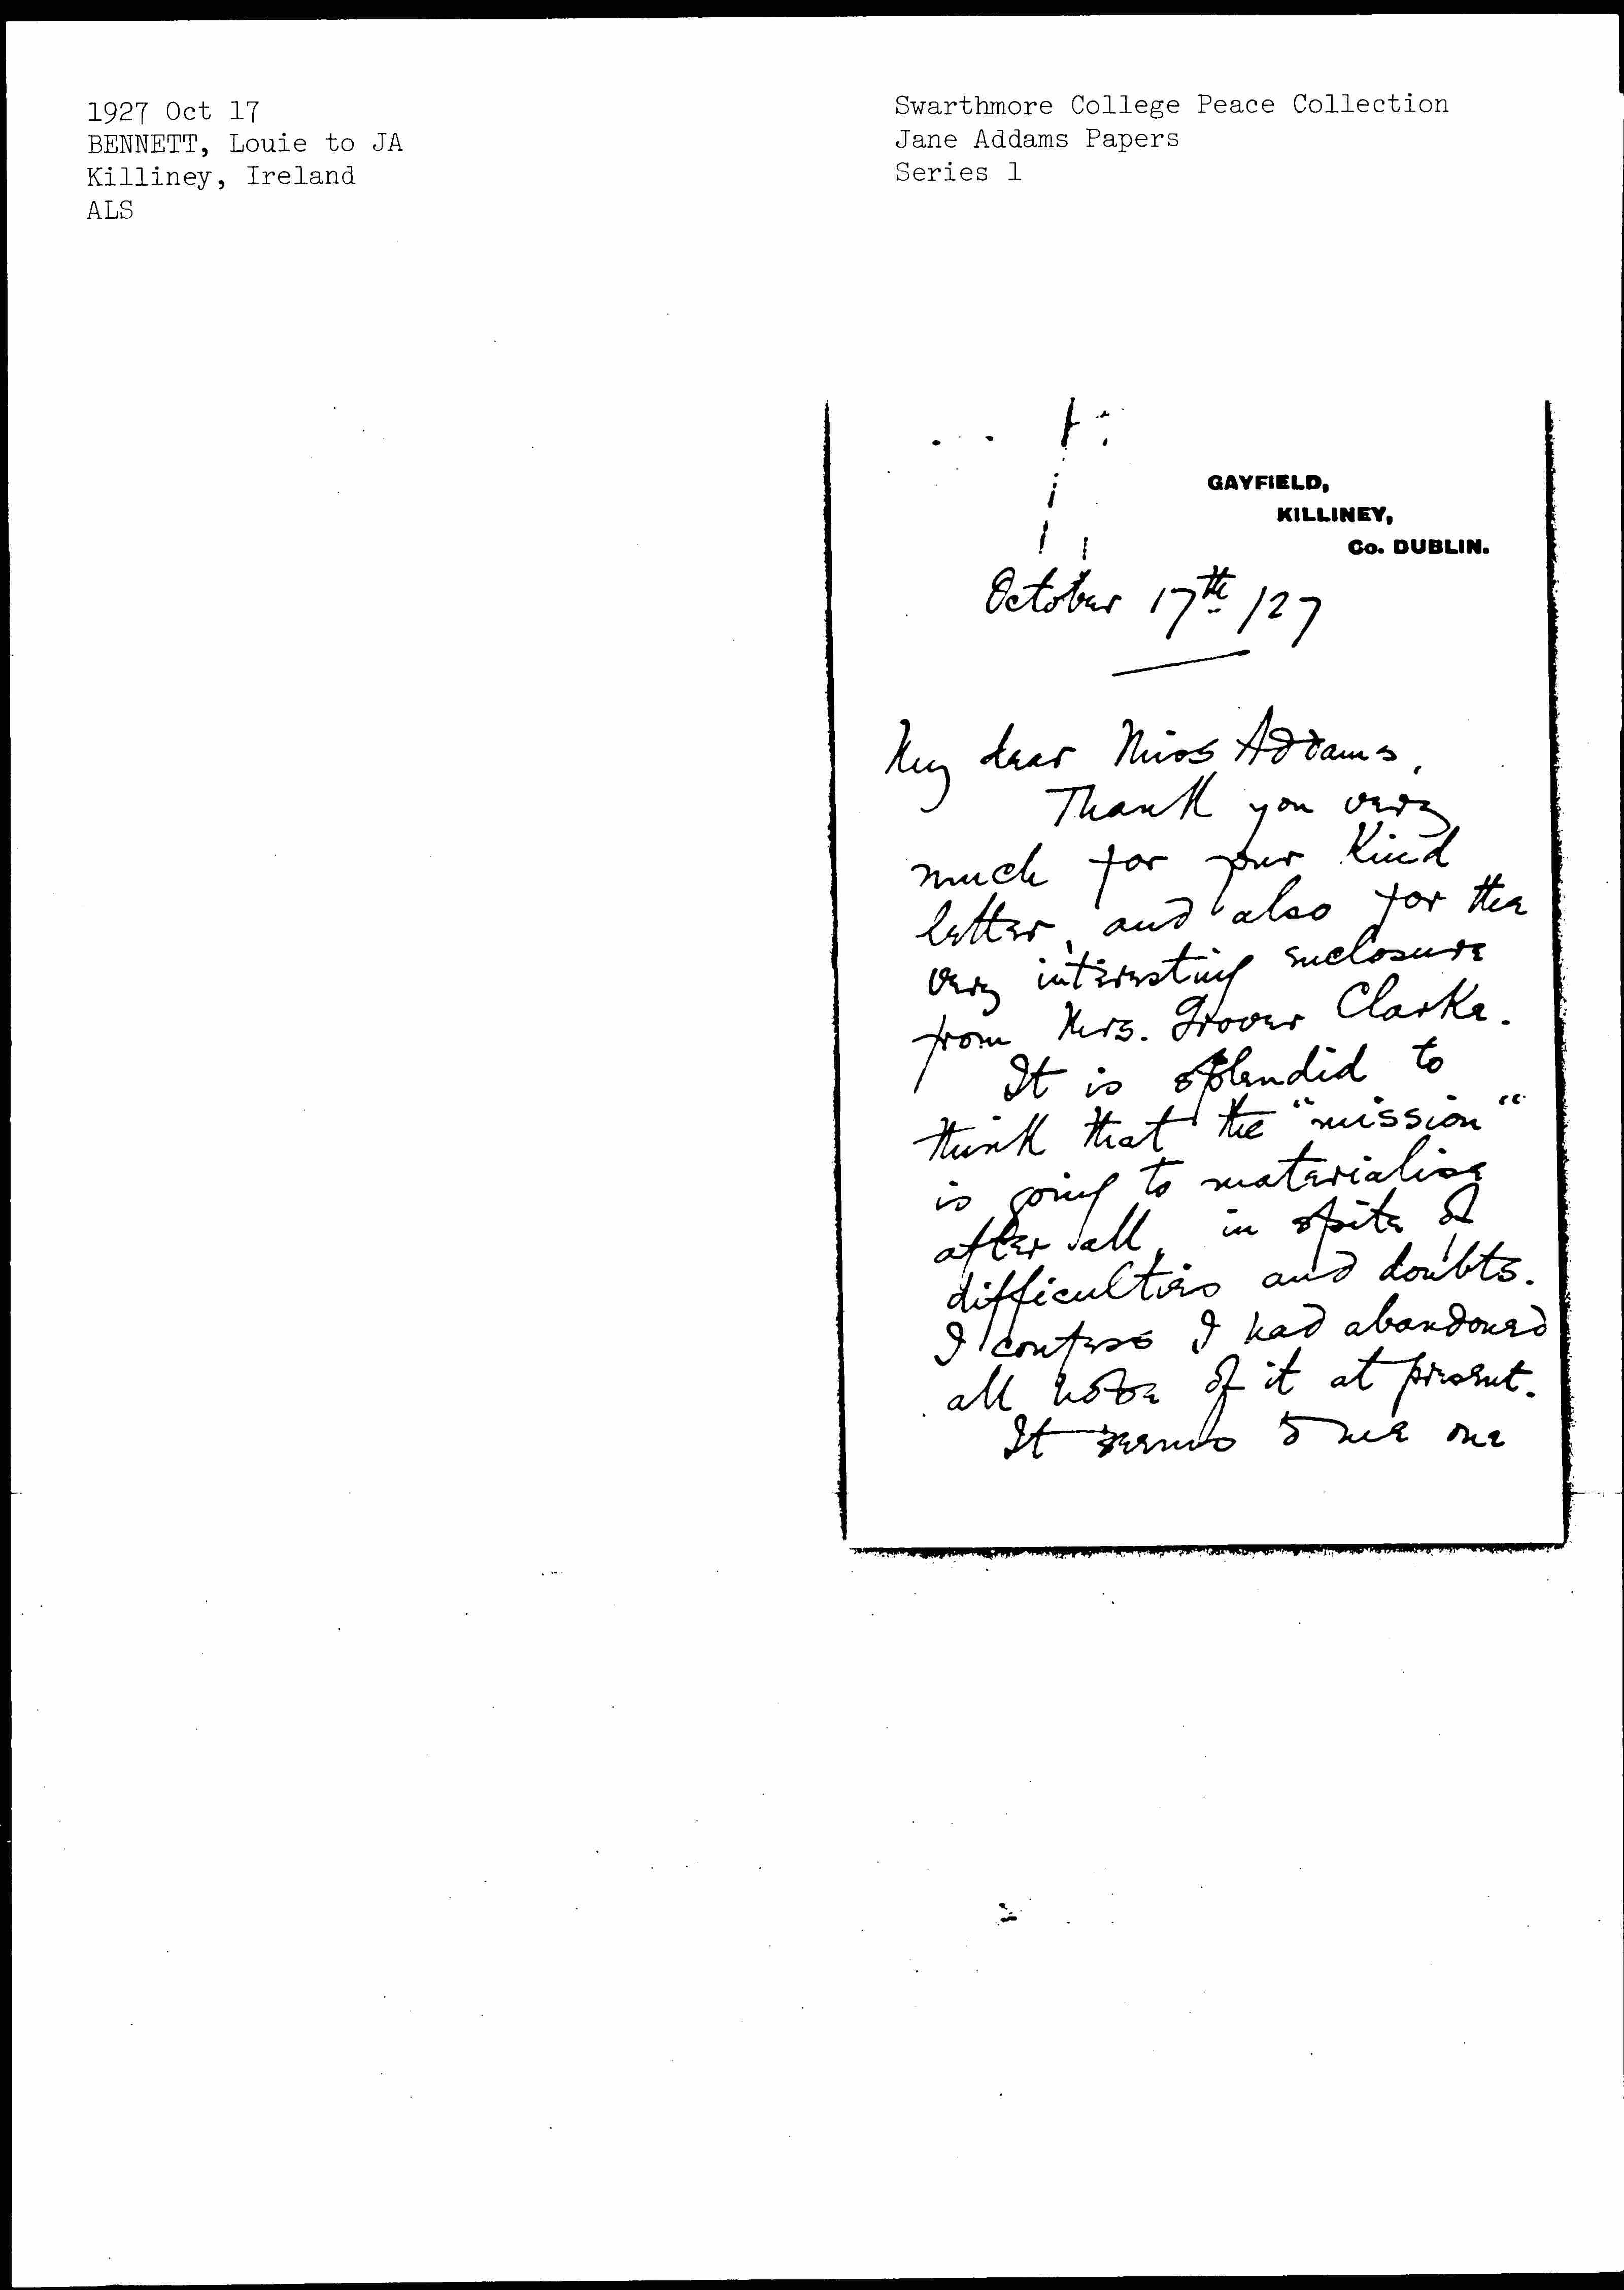 1927 Oct 17
BENNETT, Louie to JA
Killiney, Ireland
ALS
Swarthmore College Peace Collection
Jane Addams Papers
Series 1
GAYFIELD,
KILLINEY,
Co. DUBLIN.
October 17th /27
My dear Miss Addams,
Thank you very
much for your kind
letter, and also for the
very interesting enclosure
from Mrs. Grover Clarke.
It is splendid to
think that the "mission"
is going to materialise
after all, in spite of
difficulties and doubts.
I confess I had abandoned
all hope of it at present.
It seems to me one